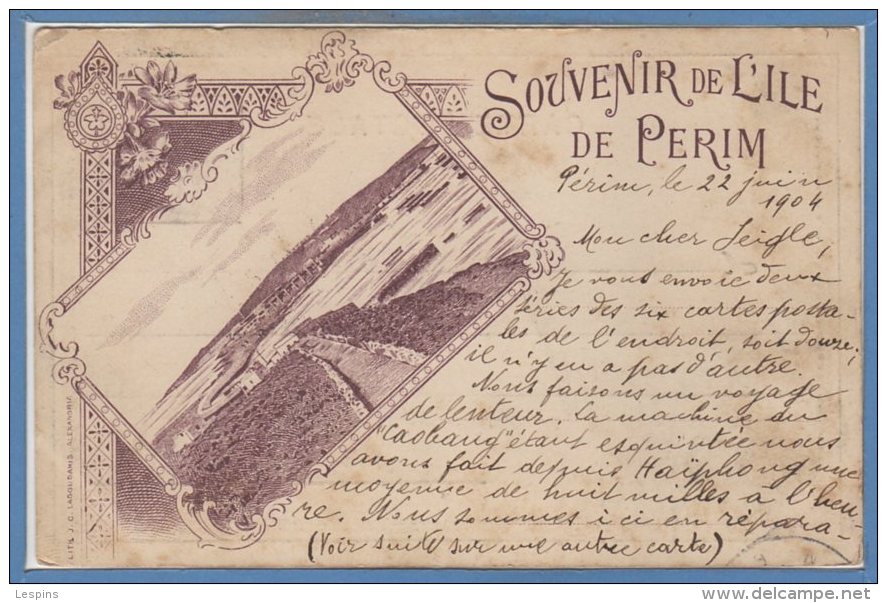 SOUVENIR DE L'ILE
DE PERIM
Périm, le 22 juin
1904
Mon cher Seigle,
Je vous envoie deux
séries des six cartes posta-
les de l'endroit, soit douze;
il n'y en a pas d'autre.
Nous faisons un voyage
de lenteur. La machine du
"Caobang" étant esquintée nous
avons fait depuis Haïphong une
moyenne de huit milles à l'heu-
re. Nous sommes ici en répara-
(Voir suite sur une autre carte)
LITH. J. C. LAGOUDAKIS, ALEXANDRIE
Lespins
delcampe.net